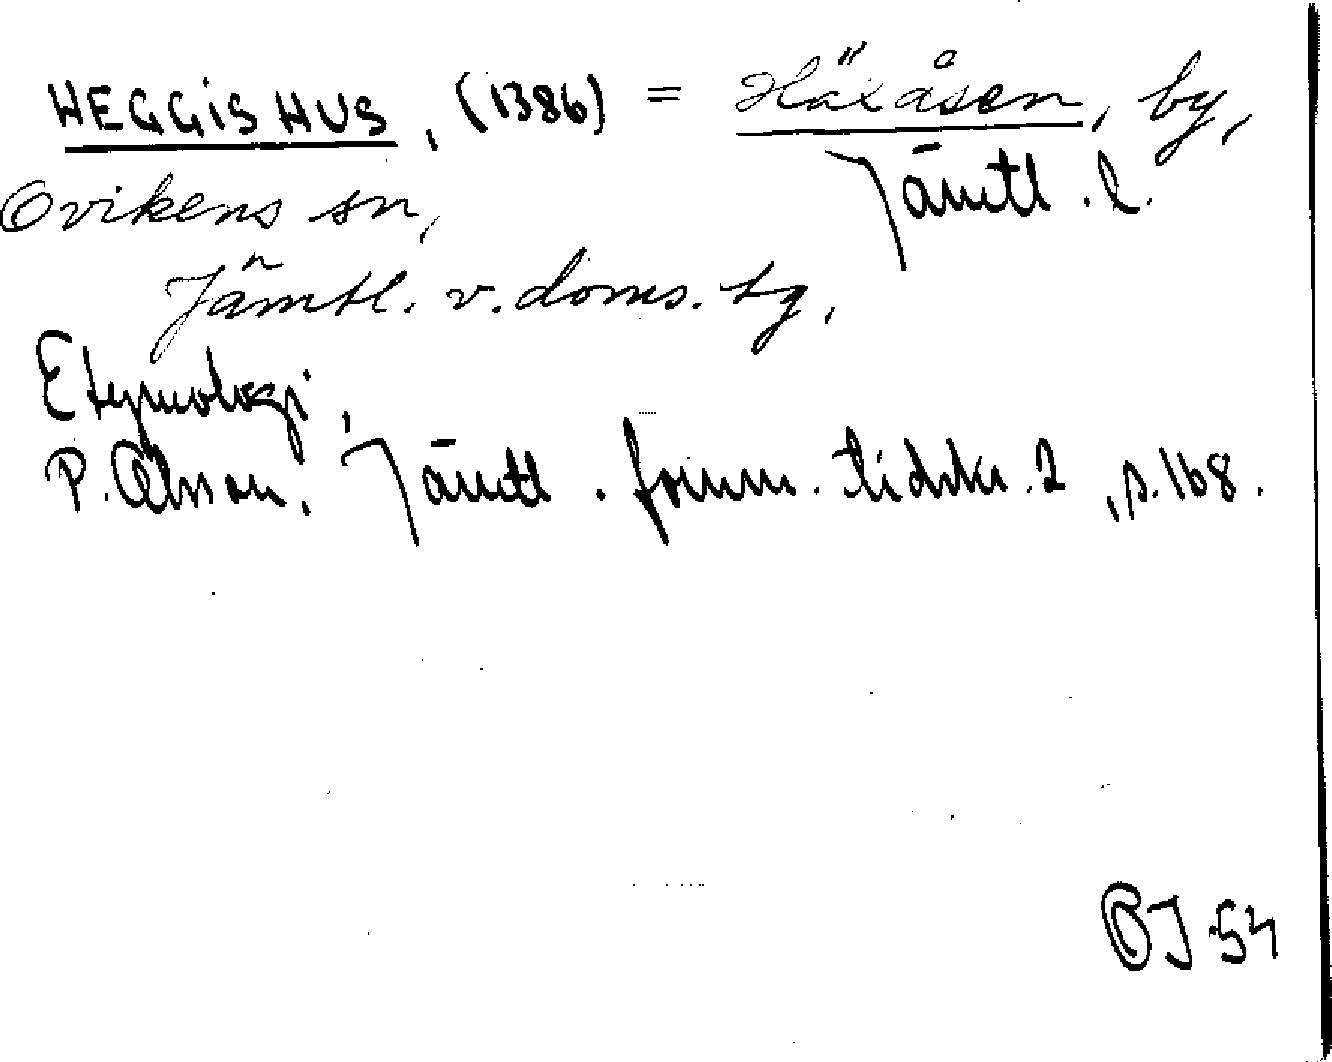 HEGGISHUS, (1386) = Häxåsen, by,
Jämtl. l.
Ovikens sn,
Jämtl. v. doms. tg,
Etymologi,
P. Olsson, Jämtl. fornm. tidskr. 2, s. 168.
54